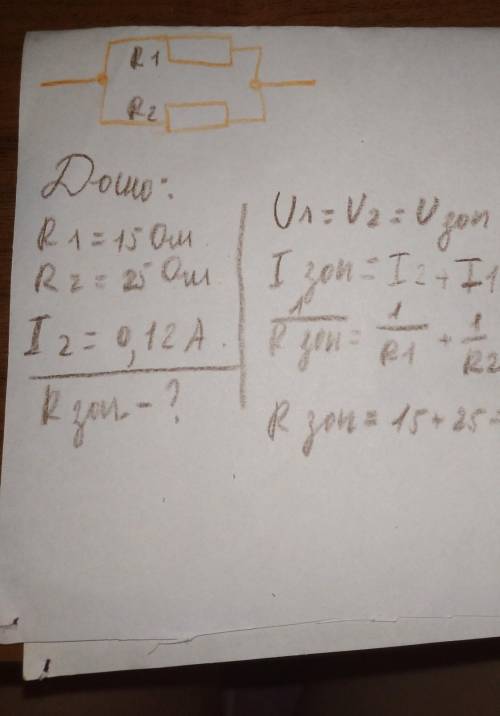 R1
R2
Дано:
R1 = 15 Ом
R2 = 25 Ом
I2 = 0,12 А.
Rзоп. - ?
U1 = U2 = Uзоп
Iзоп = I2 + I1
1/Rзоп = 1/R1 + 1/R2
Rзоп = 15 + 25 =